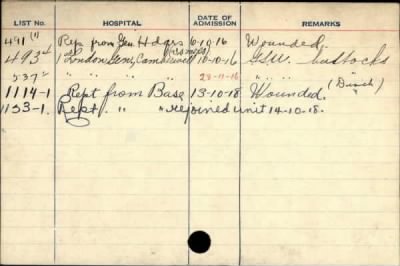 LIST No. HOSPITAL DATE OF ADMISSION REMARKS
491(1) Rep. from Gen. Hdqrs 6-10-16 Wounded.
493 London Gen, Camberwell 10-10-16 G.S.W. buttocks
537 " " " 28-11-16 " "
1114-1 Rept from Base 13-10-18 Wounded.
1133-1. Rept. " " rejoined unit 14-10-18.